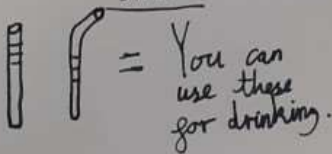 = You can
use these
for drinking.